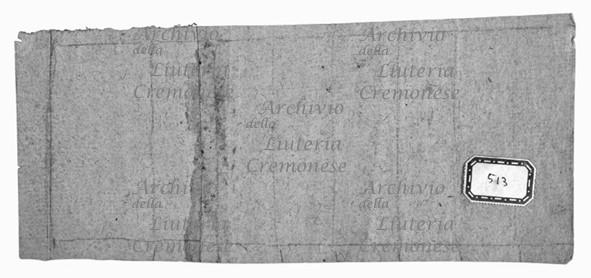 Archivio
della
Liuteria
Cremonese
Archivio
della
Liuteria
Cremonese
Archivio
della
Liuteria
Cremonese
513
Archivio
della
Liuteria
Cremonese
Archivio
della
Liuteria
Cremonese